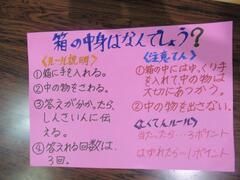 箱の中身はなんでしょう？
《ルール説明》
①箱に手を入れる。
②中の物をさわる。
③答えが分かったら、
しんさいんに伝
える。
④答えれる回数は、
3回。
《注意てん》
①箱の中にはゆっくり手
を入れて中の物は
大切にあつかう。
②中の物を出さない。
《とくてんルール》
当たったら…3ポイント
はずれたら…1ポイント